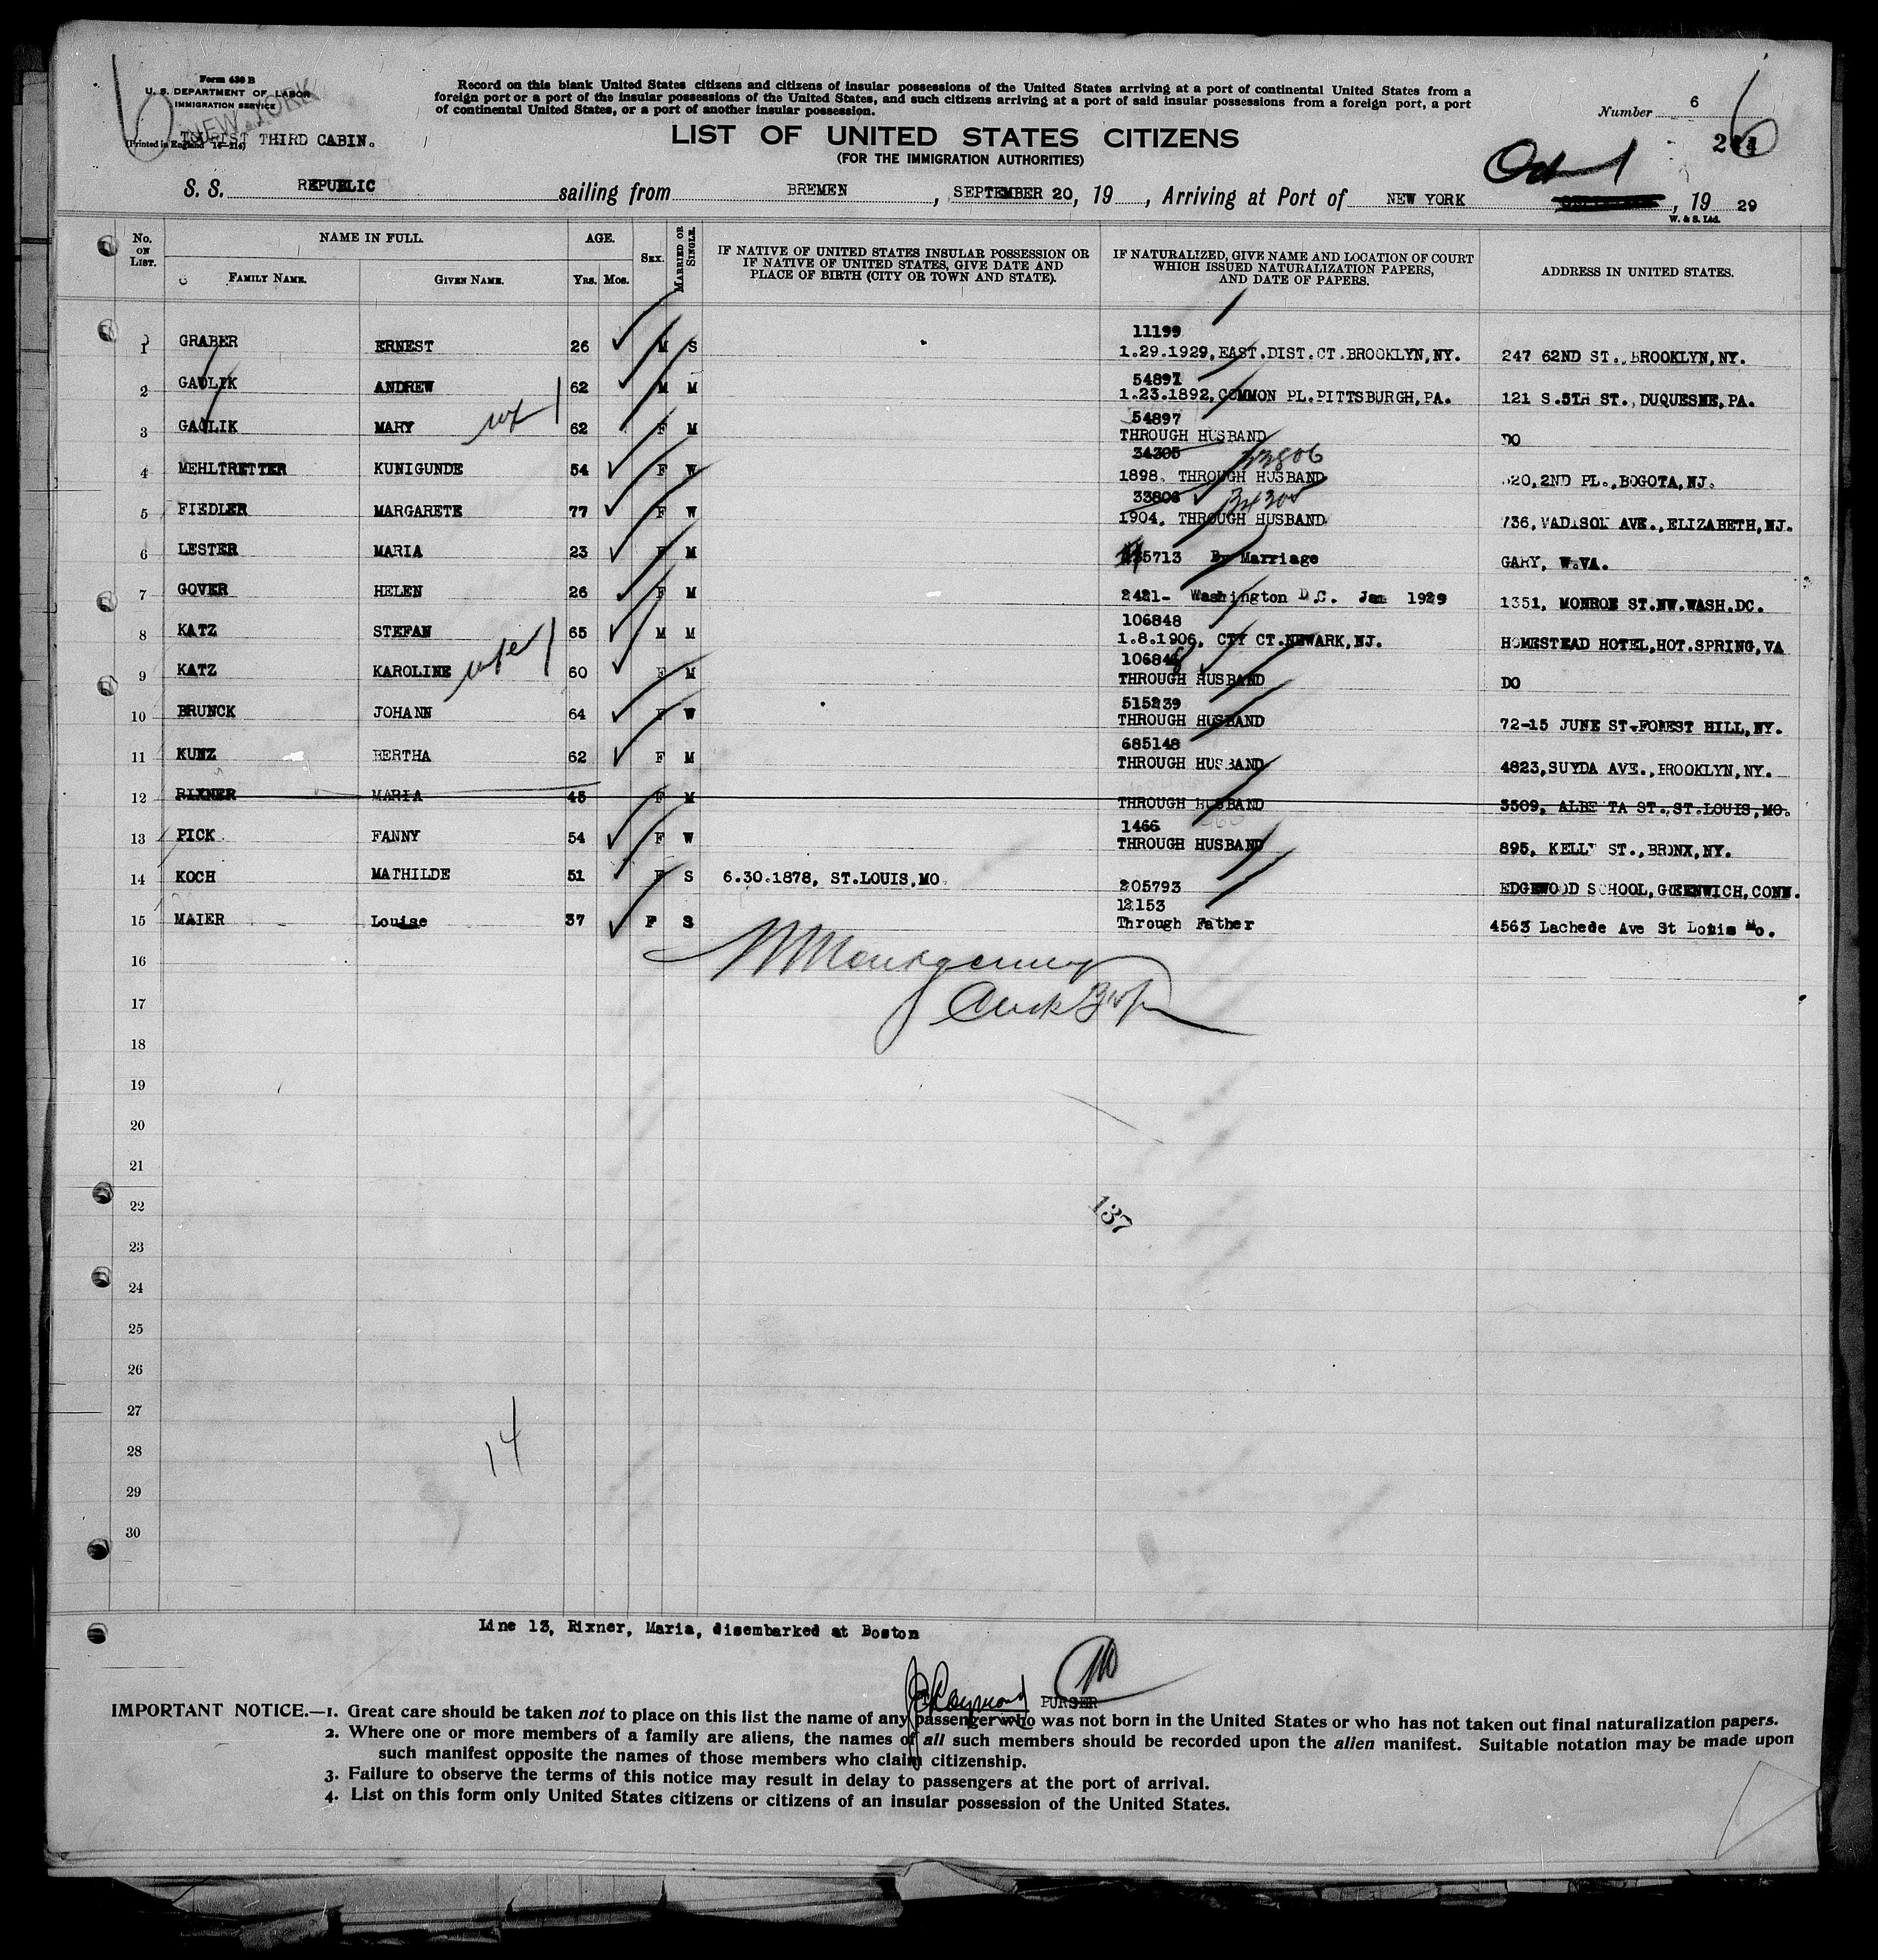 Form 630 B
U. S. DEPARTMENT OF LABOR
IMMIGRATION SERVICE
NEW YORK
(Printed in England
TOURIST THIRD CABIN.
6
Record on this blank United States citizens and citizens of insular possessions of the United States arriving at a port of continental United States from a
foreign port or a port of the insular possessions of the United States, and such citizens arriving at a port of said insular possessions from a foreign port, a port
of continental United States, or a port of another insular possession.
LIST OF UNITED STATES CITIZENS
(FOR THE IMMIGRATION AUTHORITIES)
Number 6
6
S. S. REPUBLIC sailing from BREMEN, SEPTEMBER 20, 19, Arriving at Port of NEW YORK Oct 1, 19 29
W. & S. Ltd.
No. ON LIST. NAME IN FULL. AGE. SEX. MARRIED OR SINGLE. IF NATIVE OF UNITED STATES INSULAR POSSESSION OR IF NATIVE OF UNITED STATES, GIVE DATE AND PLACE OF BIRTH (CITY OR TOWN AND STATE). IF NATURALIZED, GIVE NAME AND LOCATION OF COURT WHICH ISSUED NATURALIZATION PAPERS, AND DATE OF PAPERS. ADDRESS IN UNITED STATES.
FAMILY NAME. GIVEN NAME. Yrs. Mos.
11199
1 GRABER ERNEST 26 M S 1.29.1929, EAST.DIST.CT.BROOKLYN,NY. 247 62ND ST., BROOKLYN,NY.
54897
2 GAULIK ANDREW 62 M M 1.23.1892, COMMON PL.PITTSBURGH,PA. 121 S.5TH ST., DUQUESNE,PA.
54897
3 GAULIK MARY 62 F M THROUGH HUSBAND DO
34305 33806
4 MEHLTRETTER KUNIGUNDE 54 F W 1898. THROUGH HUSBAND 520,2ND PL.,BOGOTA,NJ.
33806 34305
5 FIEDLER MARGARETE 77 F W 1904, THROUGH HUSBAND 736, MADISON AVE.,ELIZABETH,NJ.
6 LESTER MARIA 23 F M 35713 By Marriage GARY, W.VA.
7 GOVER HELEN 26 F M 2421- Washington D.C. Jan 1929 1351, MONROE ST.NW.WASH.DC.
106848
8 KATZ STEFAN 65 M M 1.8.1906, CTY CT.NEWARK,NJ. HOMESTEAD HOTEL,HOT.SPRING,VA
106848
9 KATZ KAROLINE wife 60 F M THROUGH HUSBAND DO
515239
10 BRUNCK JOHANN 64 F W THROUGH HUSBAND 72-15 JUNE ST.FOREST HILL,NY.
685148
11 KUNZ BERTHA 62 F M THROUGH HUSBAND 4823,SUYDA AVE.,BROOKLYN,NY.
12 RIXNER MARIA 45 F M THROUGH HUSBAND 3509, ALBERTA ST.,ST.LOUIS,MO.
1466
13 PICK FANNY 54 F W THROUGH HUSBAND 895, KELLY ST.,BRONX,NY.
14 KOCH MATHILDE 51 F S 6.30.1878, ST.LOUIS,MO. 205793 EDGEWOOD SCHOOL,GREENWICH,CONN.
12153
15 MAIER Louise 37 F S Through Father 4563 Lachede Ave St Louis Mo.
16
17
18
19
20
21
22
137
23
24
25
26
27
28
14
29
30
Line 13, Rixner, Maria, disembarked at Boston
PURSER
IMPORTANT NOTICE.—1. Great care should be taken not to place on this list the name of any passenger who was not born in the United States or who has not taken out final naturalization papers.
2. Where one or more members of a family are aliens, the names of all such members should be recorded upon the alien manifest. Suitable notation may be made upon
such manifest opposite the names of those members who claim citizenship.
3. Failure to observe the terms of this notice may result in delay to passengers at the port of arrival.
4. List on this form only United States citizens or citizens of an insular possession of the United States.